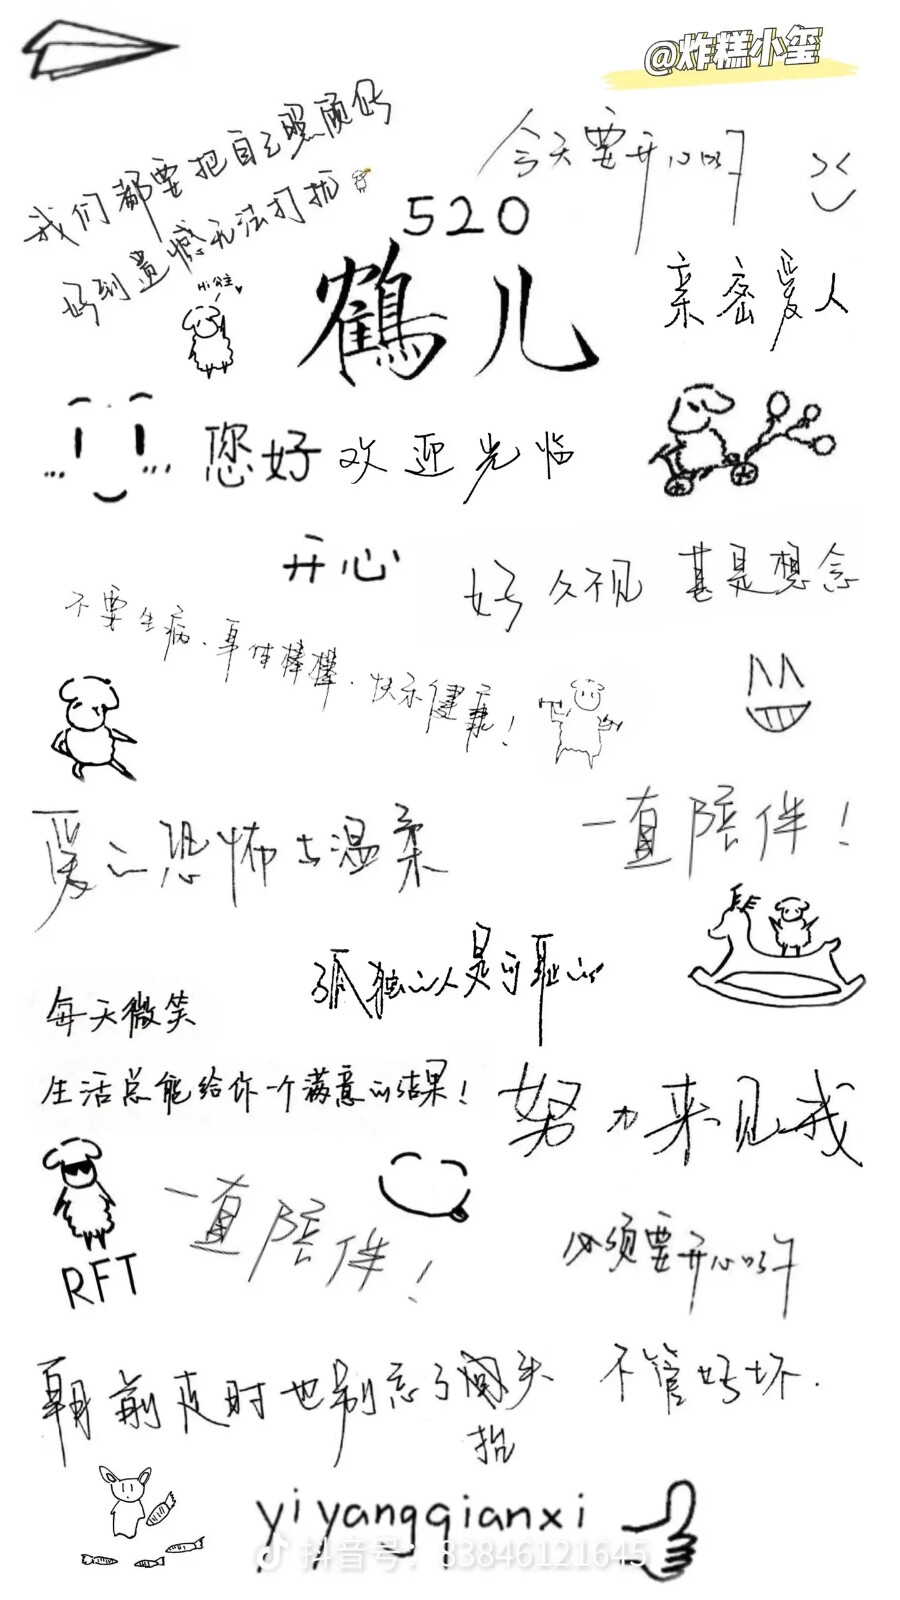 @炸糕小玺
我们都要把自己照顾好
好到遗憾无法打扰
今天要开心哦
520
Hi 公主
鹤儿
亲密爱人
您好 欢迎光临
开心
好久不见 甚是想念
不要生病.身体棒棒.快乐健康!
爱让恐怖去温柔
一直陪伴!
孤独的人是可耻的
每天微笑
生活总能给你一个满意的结果!
努力来见我
RFT
一直陪伴!
必须要开心哦
朝前走时也别忘了 头
抬
不管好坏.
yiyangqianxi
抖音号: 83846121645